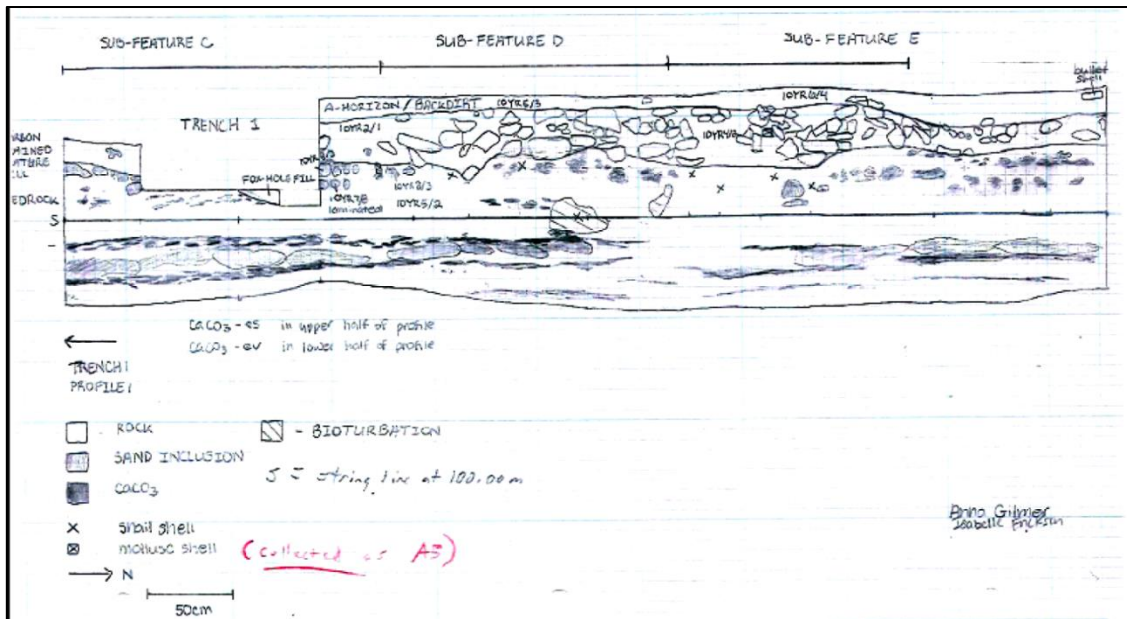 SUB-FEATURE C
SUB-FEATURE D
SUB-FEATURE E
bullet
shell
A-HORIZON/BACKDIRT 10YR6/3
10YR6/4
TRENCH 1
10YR2/1
10YR4/2
FOX-HOLE FILL
10YR2/3
10YR7/8
laminated
10YR5/2
S
CaCO3-es in upper half of profile
CaCO3-ev in lower half of profile
TRENCH 1
PROFILE 1
ROCK
- BIOTURBATION
SAND INCLUSION
S = string line at 100.00 m
CaCO3
snail shell
mollusc shell (collected as A3)
N
50cm
Anna Gilmer
Isabelle Erickson